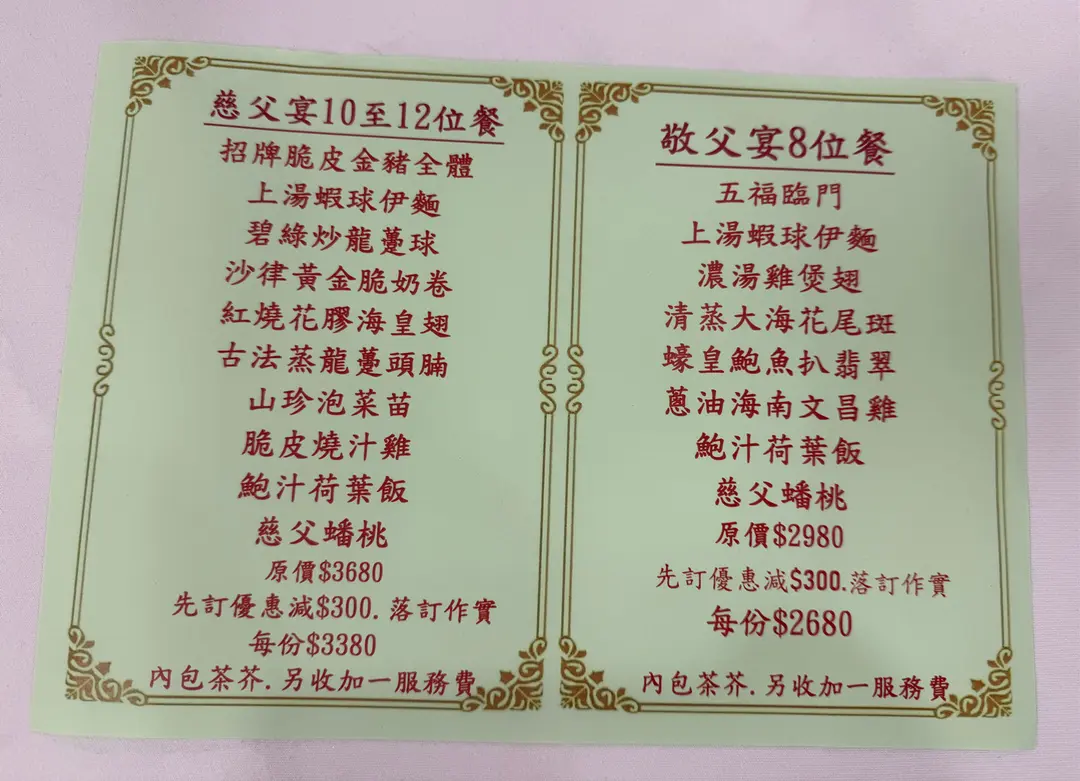 慈父宴10至12位餐
招牌脆皮金豬全體
上湯蝦球伊麵
碧綠炒龍躉球
沙律黃金脆奶卷
紅燒花膠海皇翅
古法蒸龍躉頭腩
山珍泡菜苗
脆皮燒汁雞
鮑汁荷葉飯
慈父蟠桃
原價$3680
先訂優惠減$300.落訂作實
每份$3380
內包茶芥.另收加一服務費
敬父宴8位餐
五福臨門
上湯蝦球伊麵
濃湯雞煲翅
清蒸大海花尾斑
蠔皇鮑魚扒翡翠
蔥油海南文昌雞
鮑汁荷葉飯
慈父蟠桃
原價$2980
先訂優惠減$300.落訂作實
每份$2680
內包茶芥.另收加一服務費